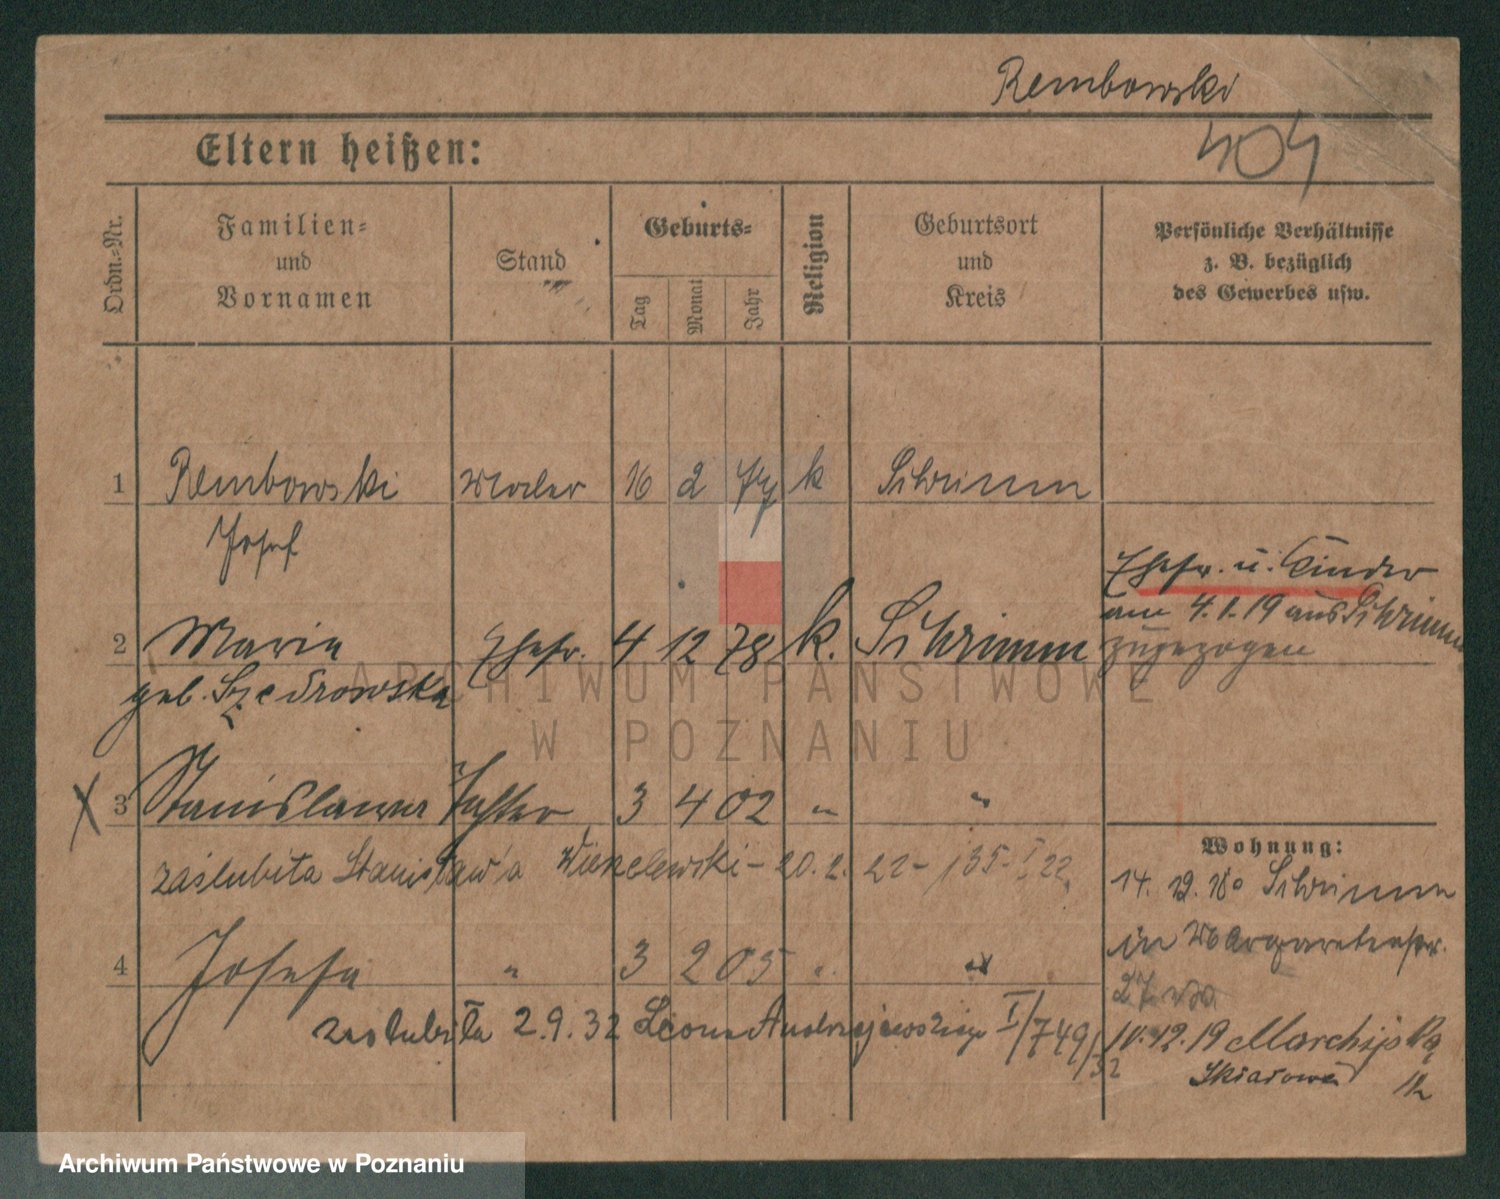 Rembowski
404
Eltern heißen:
Ordn.-Nr.
Familien-
und
Vornamen
Stand
Geburts-
Tag
Monat
Jahr
Religion
Geburtsort
und
Kreis
Persönliche Verhältnisse
z. B. bezüglich
des Gewerbes usw.
1 Rembowski Maler 16 2 k Schrimm
Josef
Ehefr. u. Kinder
am 4.1.19 aus Schrimm
zugezogen
2 Maria Ehefr. 4 12 78 k. Schrimm
geb. Szedrowska
3 Stanislawa Tochter 3 4 02 " "
zaślubiła Stanisław'a 20.2. 22 - 135 - I 22
Wohnung:
14. 12. 18 Schrimm
4 Josefa " 3 2 05 " "
in Margaretenstr.
27
zaślubiła 2.9.32 Leona Andrzejewskiego I/749/32
10.12.19
ARCHIWUM PAŃSTWOWE
W POZNANIU
Archiwum Państwowe w Poznaniu